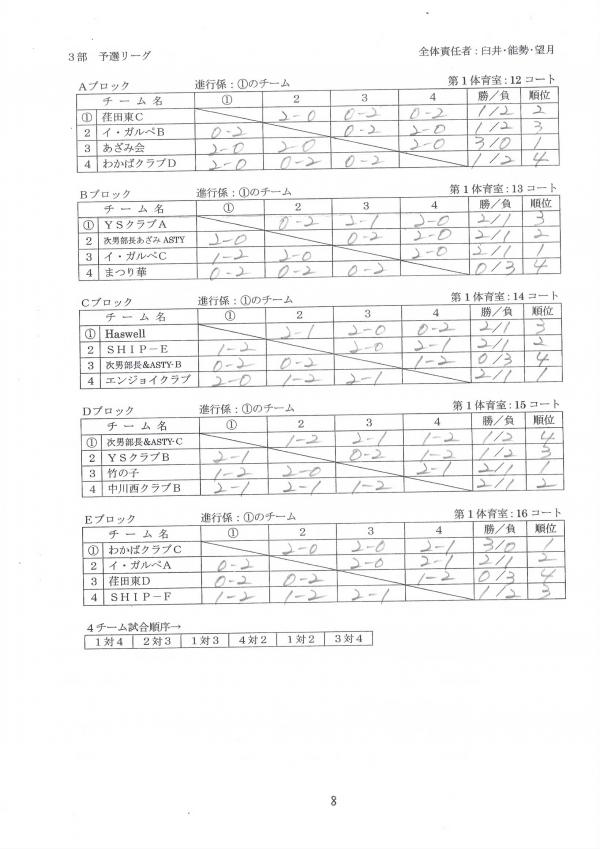 3部 予選リーグ 全体責任者:臼井・能勢・望月
Aブロック 進行係:①のチーム 第1体育室:12コート
チーム名 ① 2 3 4 勝/負 順位
① 荏田東C 2-0 0-2 0-2 1/2 2
2 イ・ガルベB 0-2 0-2 2-0 1/2 3
3 あざみ会 2-0 2-0 2-0 3/0 1
4 わかばクラブD 2-0 0-2 0-2 1/2 4
Bブロック 進行係:①のチーム 第1体育室:13コート
チーム名 ① 2 3 4 勝/負 順位
① YSクラブA 0-2 2-1 2-0 2/1 3
2 次男部長あざみASTY 2-0 0-2 2-0 2/1 2
3 イ・ガルベC 1-2 2-0 2-0 2/1 1
4 まつり華 0-2 0-2 0-2 0/3 4
Cブロック 進行係:①のチーム 第1体育室:14コート
チーム名 ① 2 3 4 勝/負 順位
① Haswell 2-1 2-0 0-2 2/1 3
2 SHIP-E 1-2 2-0 2-1 2/1 2
3 次男部長&ASTY-B 0-2 0-2 1-2 0/3 4
4 エンジョイクラブ 2-0 1-2 2-1 2/1 1
Dブロック 進行係:①のチーム 第1体育室:15コート
チーム名 ① 2 3 4 勝/負 順位
① 次男部長&ASTY-C 1-2 2-1 1-2 1/2 4
2 YSクラブB 2-1 0-2 1-2 1/2 3
3 竹の子 1-2 2-0 2-1 2/1 1
4 中川西クラブB 2-1 2-1 1-2 2/1 2
Eブロック 進行係:①のチーム 第1体育室:16コート
チーム名 ① 2 3 4 勝/負 順位
① わかばクラブC 2-0 2-0 2-1 3/0 1
2 イ・ガルベA 0-2 2-0 2-1 2/1 2
3 荏田東D 0-2 0-2 1-2 0/3 4
4 SHIP-F 1-2 1-2 2-1 1/2 3
4チーム試合順序→
1対4 2対3 1対3 4対2 1対2 3対4
8